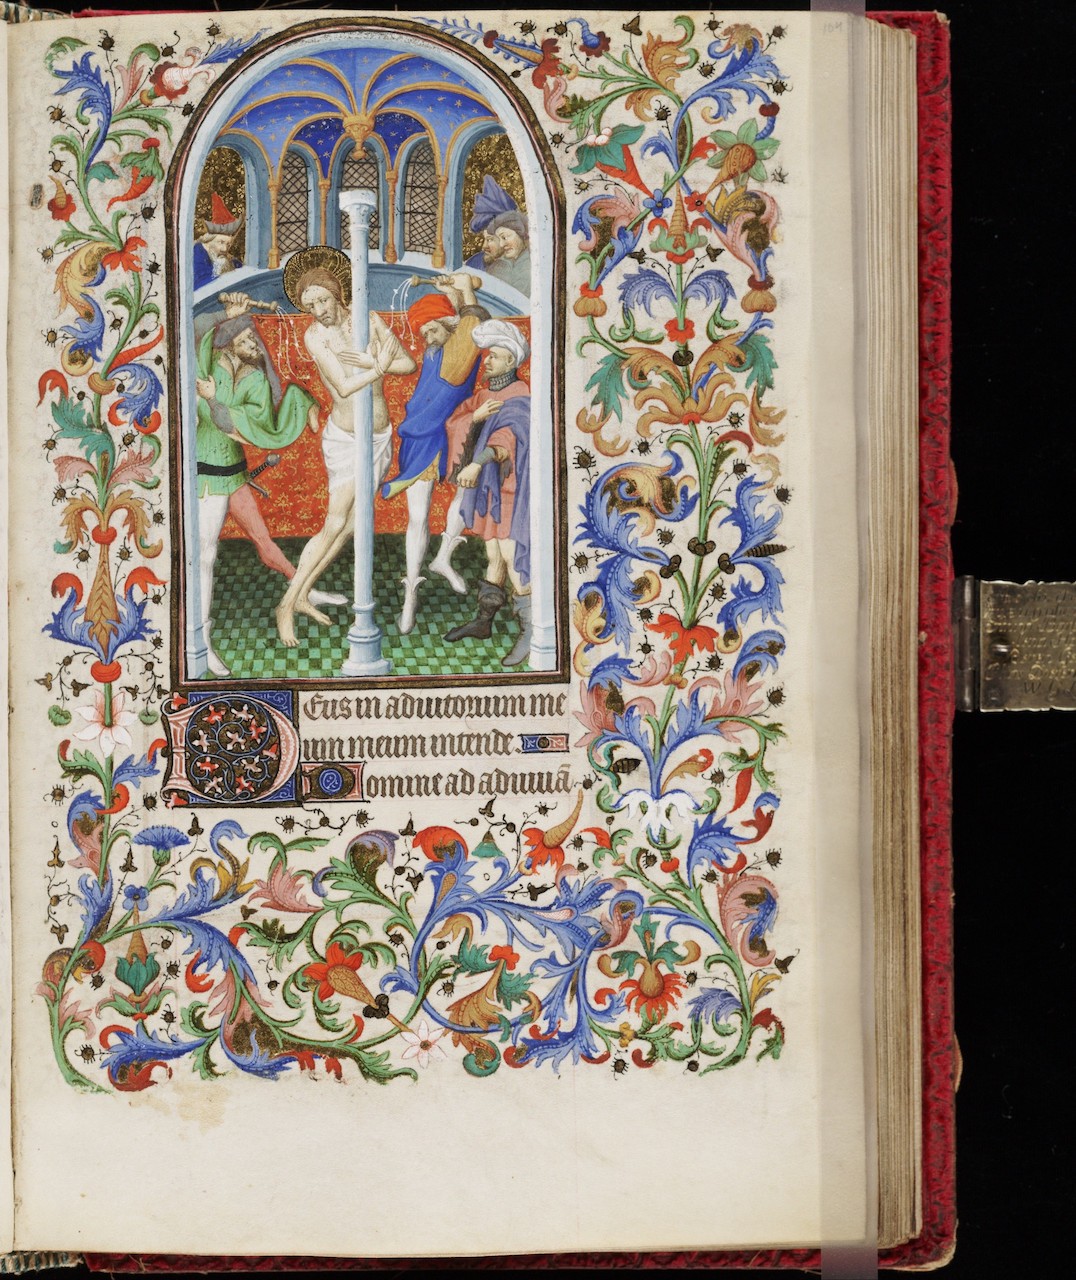 Deus in adiutorium me
um meum intende.
Domine ad adiuuā